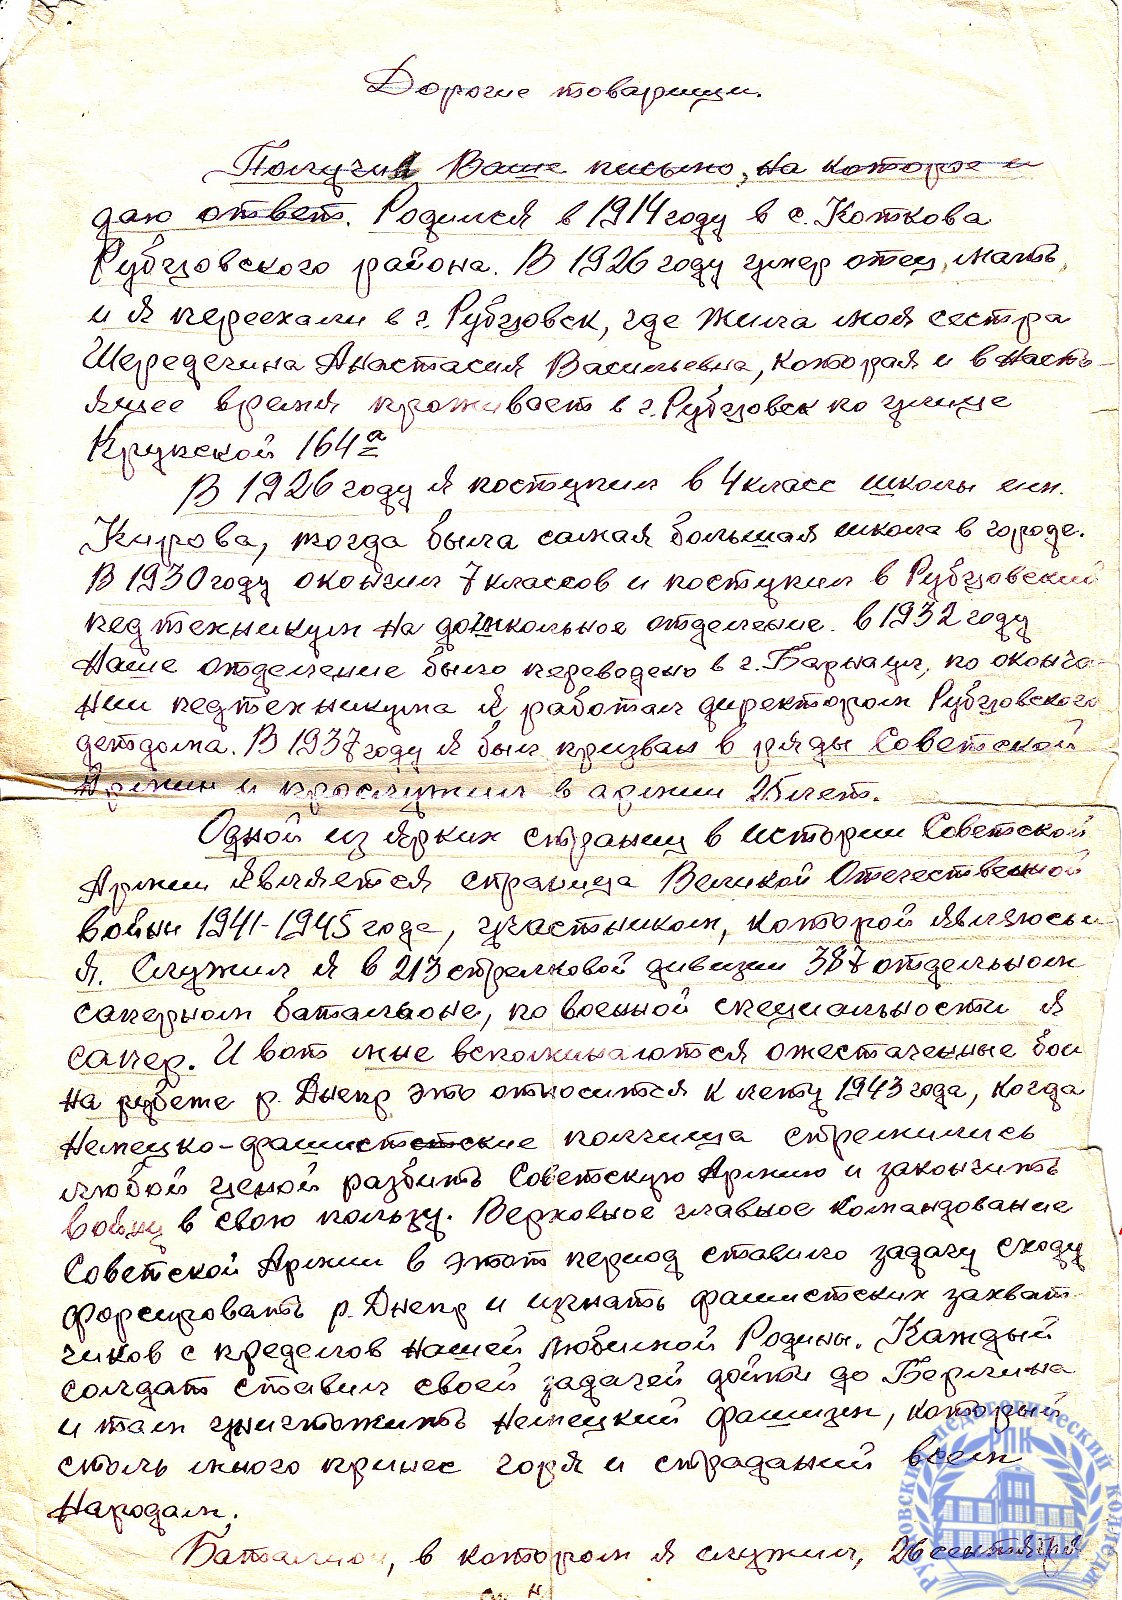 Дорогие товарищи.
Получил Ваше письмо, на которое и
даю ответ. Родился в 1914 году в с. Коткова
Рубцовского района. В 1926 году умер отец, мать,
и я переехали в г. Рубцовск, где жила моя сестра
Шередегина Анастасия Васильевна, которая и в насто-
ящее время проживает в г. Рубцовск по улице
Крупской 164а
В 1926 году я поступил в 4 класс школы им.
Кирова, тогда была самая большая школа в городе.
В 1930 году окончил 7 классов и поступил в Рубцовский
педтехникум на дошкольное отделение. в 1932 году
наше отделение было переведено в г. Барнаул, по оконча-
нии педтехникума я работал директором Рубцовского
детдома. В 1937 году я был призван в ряды Советской
Армии и прослужил в армии 25 лет.
Одной из ярких страниц в истории Советской
Армии является страница Великой Отечественной
войны 1941-1945 года, участником, которой являюсь и
я. Служил я в 213 стрелковой дивизии 387 отдельном
саперном батальоне, по военной специальности я
сапер. И вот мне вспоминаются ожесточенные бои
на рубеже р. Днепр это относится к лету 1943 года, когда
немецко-фашистские полчища стремились
любой ценой разбить Советскую Армию и закончить
войну в свою пользу. Верховное главное командование
Советской Армии в этот период ставило задачу сходу
форсировать р. Днепр и изгнать фашистских захват-
чиков с пределов нашей любимой Родины. Каждый
солдат ставил своей задачей дойти до Берлина
и там уничтожить немецкий фашизм, который
столь много принес горя и страданий всем
народам.
Батальон, в котором я служил, 26 сентября
Рубцовский педагогический колледж
РПК